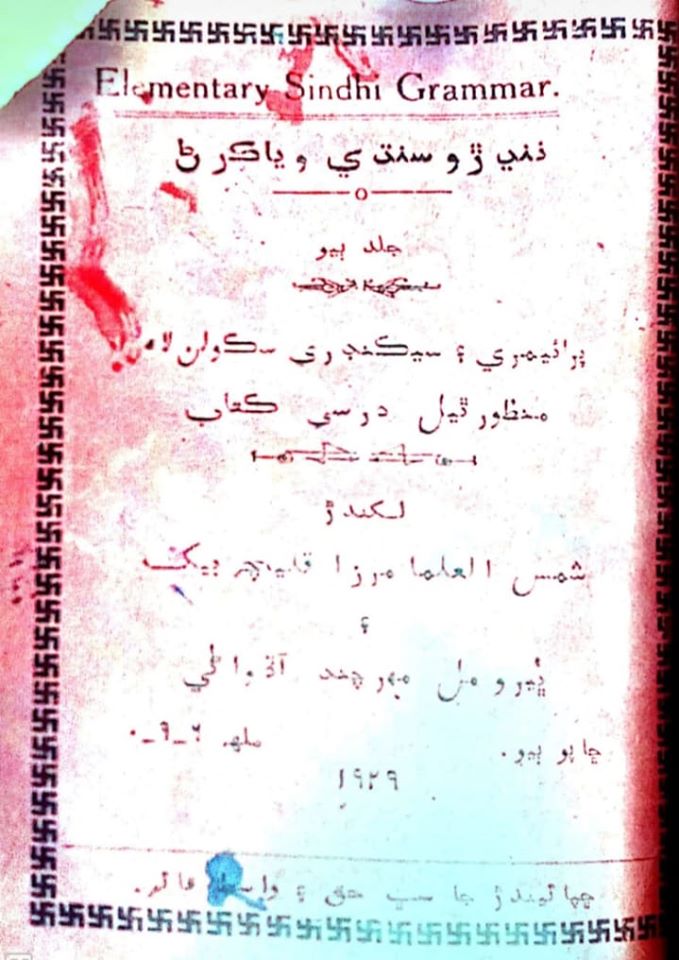 Elementary Sindhi Grammar.
ننڍڙو سنڌي وياڪرڻ
جلد ٻيو
پرائيمري ۽ سيڪنڊري سڪولن لاءِ
منظور ٿيل درسي ڪتاب
لکندڙ
شمس العلما مرزا قليچ بيگ
۽
ڀيرومل مهرچند آڏواڻي
ڇاپو ٻيو. ملهہ ۶_۹_۰
۱۹۲۹
ڇپائيندڙ جا سڀ حق ۽ واسطا قائم.